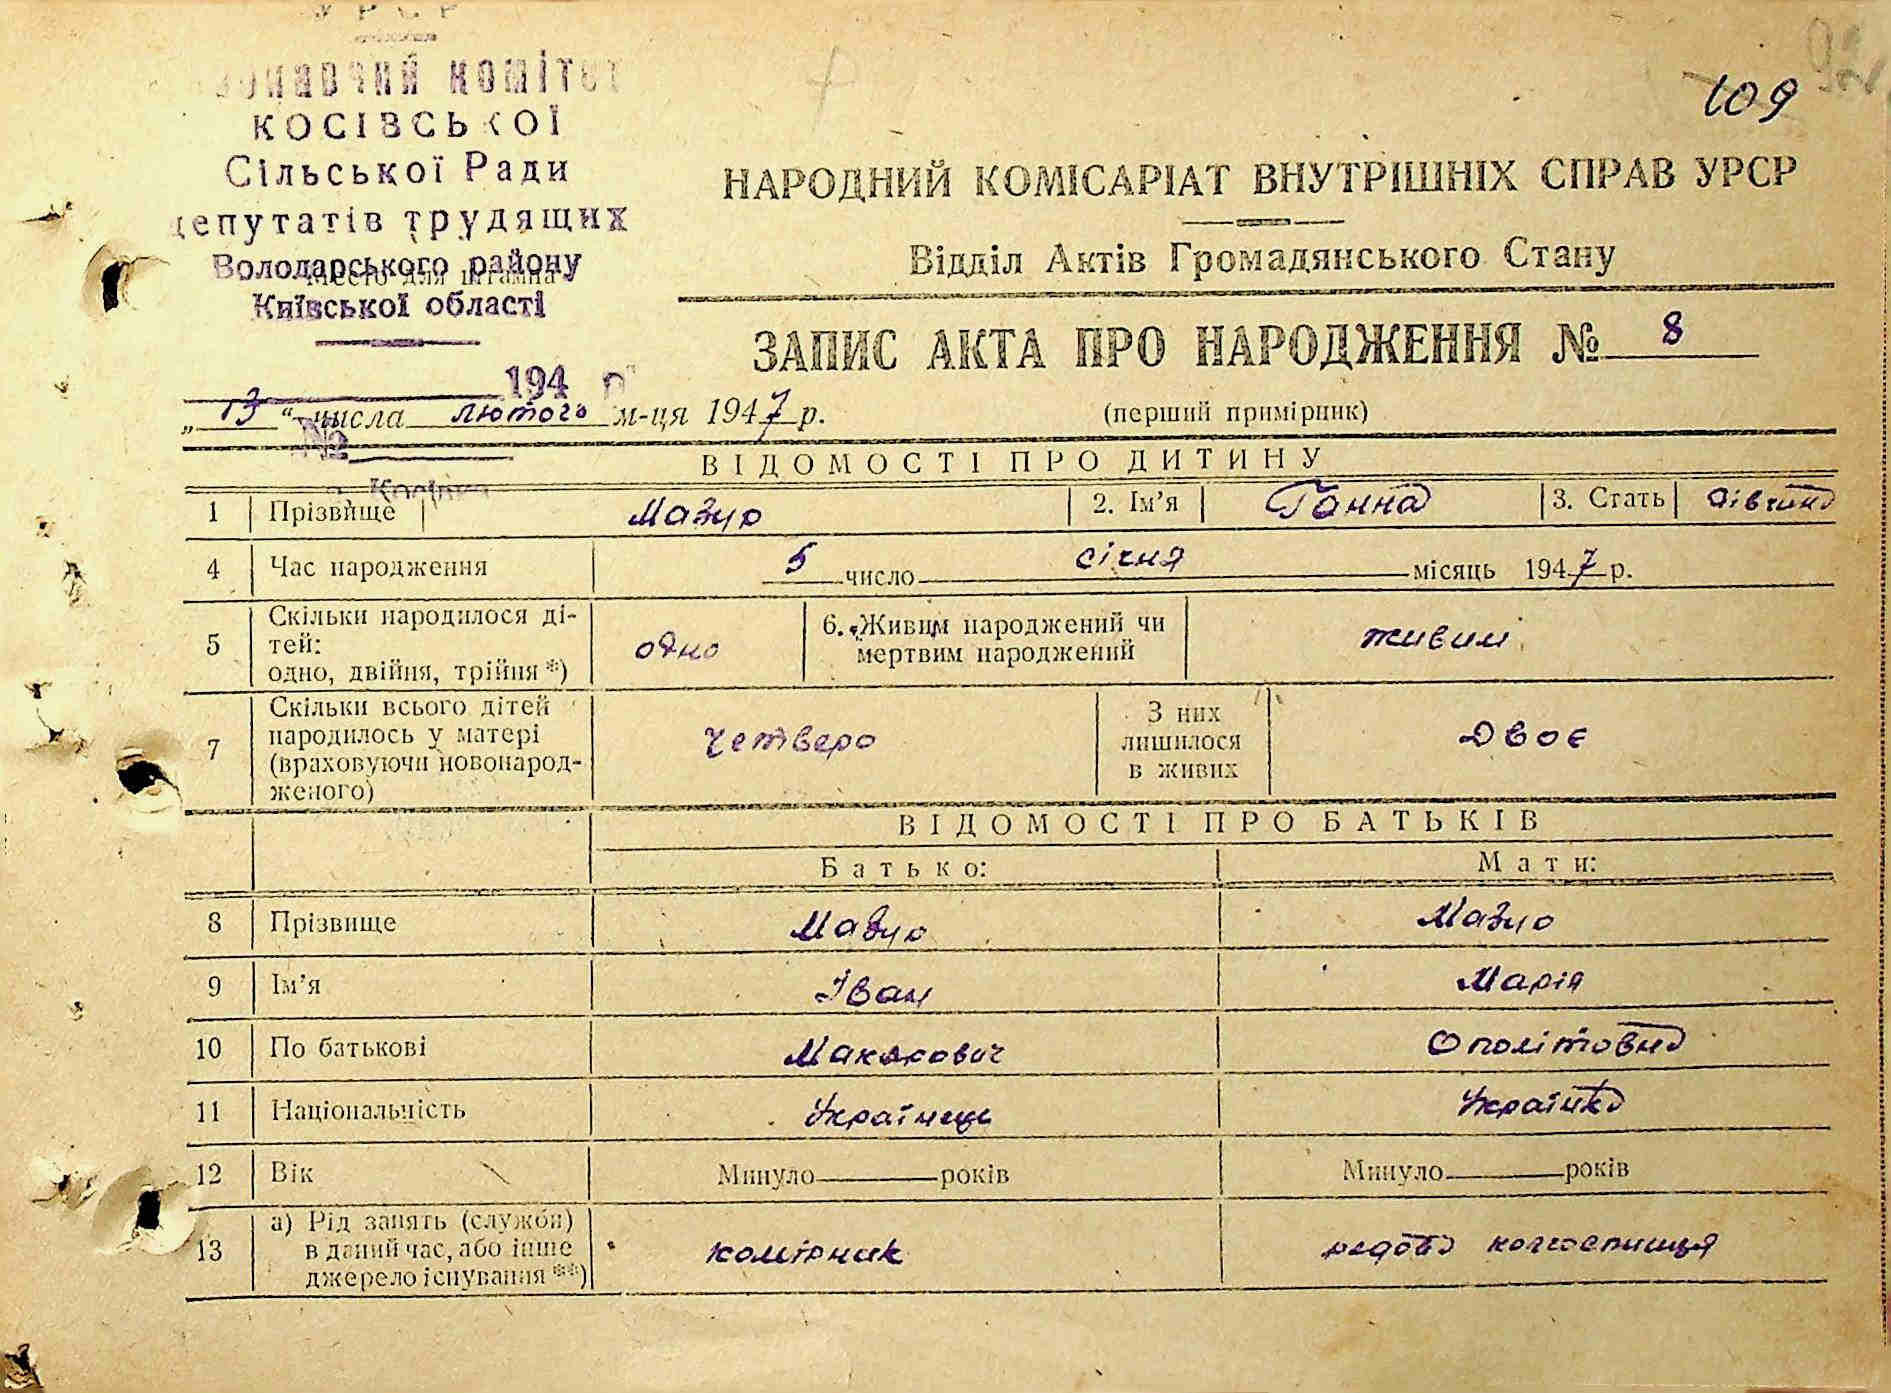 УРСР
Виконавчий комітет
КОСІВСЬКОЇ
Сільської Ради
депутатів трудящих
Володарського району
Место для штампа
Київської області
194 р.
№
с. Косівка
109
НАРОДНИЙ КОМІСАРІАТ ВНУТРІШНІХ СПРАВ УРСР
Відділ Актів Громадянського Стану
ЗАПИС АКТА ПРО НАРОДЖЕННЯ № 8
„ 13 “ числа лютого м-ця 1947 р.
(перший примірник)
ВІДОМОСТІ ПРО ДИТИНУ
1 Прізвище Мазур 2. Ім’я Ганна 3. Стать дівчина
4 Час народження 5 число січня місяць 1947 р.
5 Скільки народилося ді-
тей:
одно, двійня, трійня *) одно 6. Живим народжений чи
мертвим народжений живим
7 Скільки всього дітей
народилось у матері
(враховуючи новонарод-
женого) четверо З них
лишилося
в живих двоє
ВІДОМОСТІ ПРО БАТЬКІВ
Батько: Мати:
8 Прізвище Мазур Мазур
9 Ім’я Іван Марія
10 По батькові Макарович Ополітовна
11 Національність Українець Українка
12 Вік Минуло років Минуло років
13 а) Рід занять (служби)
в даний час, або інше
джерело існування **) комірник рядова колгоспниця